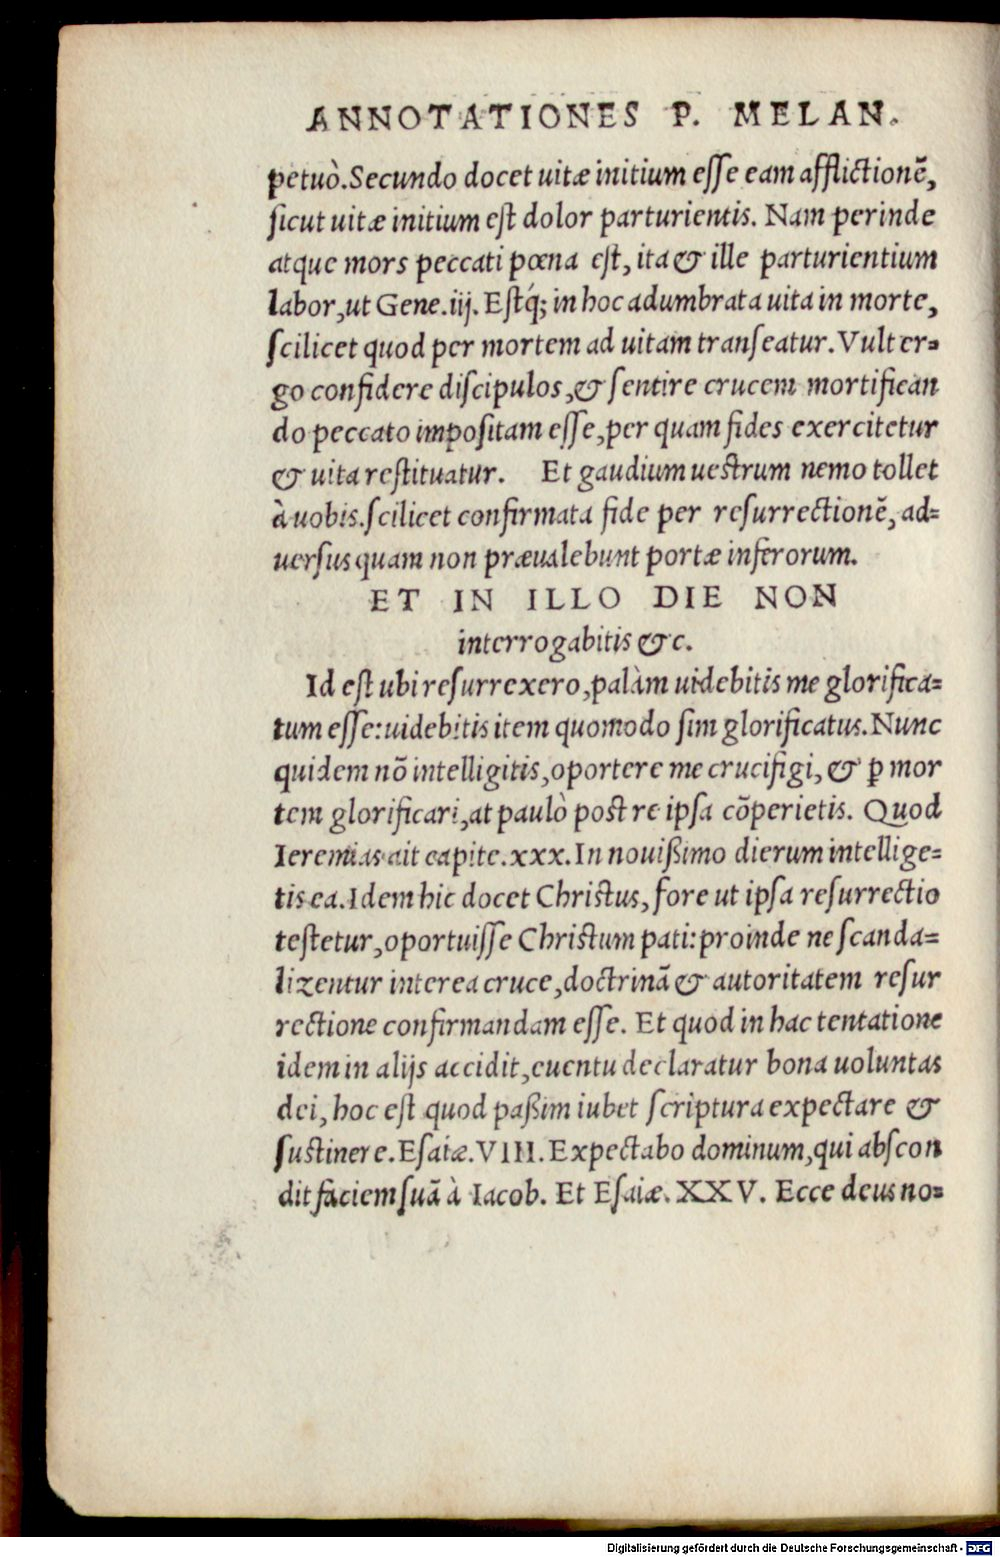 ANNOTATIONES P. MELAN.
petuò. Secundo docet uitæ initium esse eam afflictionẽ,
sicut uitæ initium est dolor parturientis. Nam perinde
atque mors peccati pœna est, ita & ille parturientium
labor, ut Gene. iij. Estq́; in hoc adumbrata uita in morte,
scilicet quod per mortem ad uitam transeatur. Vult er=
go confidere discipulos, & sentire crucem mortifican
do peccato impositam esse, per quam fides exercitetur
& uita restituatur. Et gaudium uestrum nemo tollet
à uobis. scilicet confirmata fide per resurrectionẽ, ad=
uersus quam non præualebunt portæ inferorum.
ET IN ILLO DIE NON
interrogabitis &c.
Id est ubi resurrexero, palàm uidebitis me glorifica=
tum esse: uidebitis item quomodo sim glorificatus. Nunc
quidem nõ intelligitis, oportere me crucifigi, & ꝑ mor
tem glorificari, at paulò post re ipsa cõperietis. Quod
Ieremias ait capite. xxx. In nouißimo dierum intellige=
tis ea. Idem hic docet Christus, fore ut ipsa resurrectio
testetur, oportuisse Christum pati: proinde ne scanda=
lizentur interea cruce, doctrinã & autoritatem resur
rectione confirmandam esse. Et quod in hac tentatione
idem in alijs accidit, euentu declaratur bona uoluntas
dei, hoc est quod paßim iubet scriptura expectare &
sustinere. Esaiæ. VIII. Expectabo dominum, qui abscon
dit faciem suã à Iacob. Et Esaiæ. XXV. Ecce deus no=
Digitalisierung gefördert durch die Deutsche Forschungsgemeinschaft - DFG